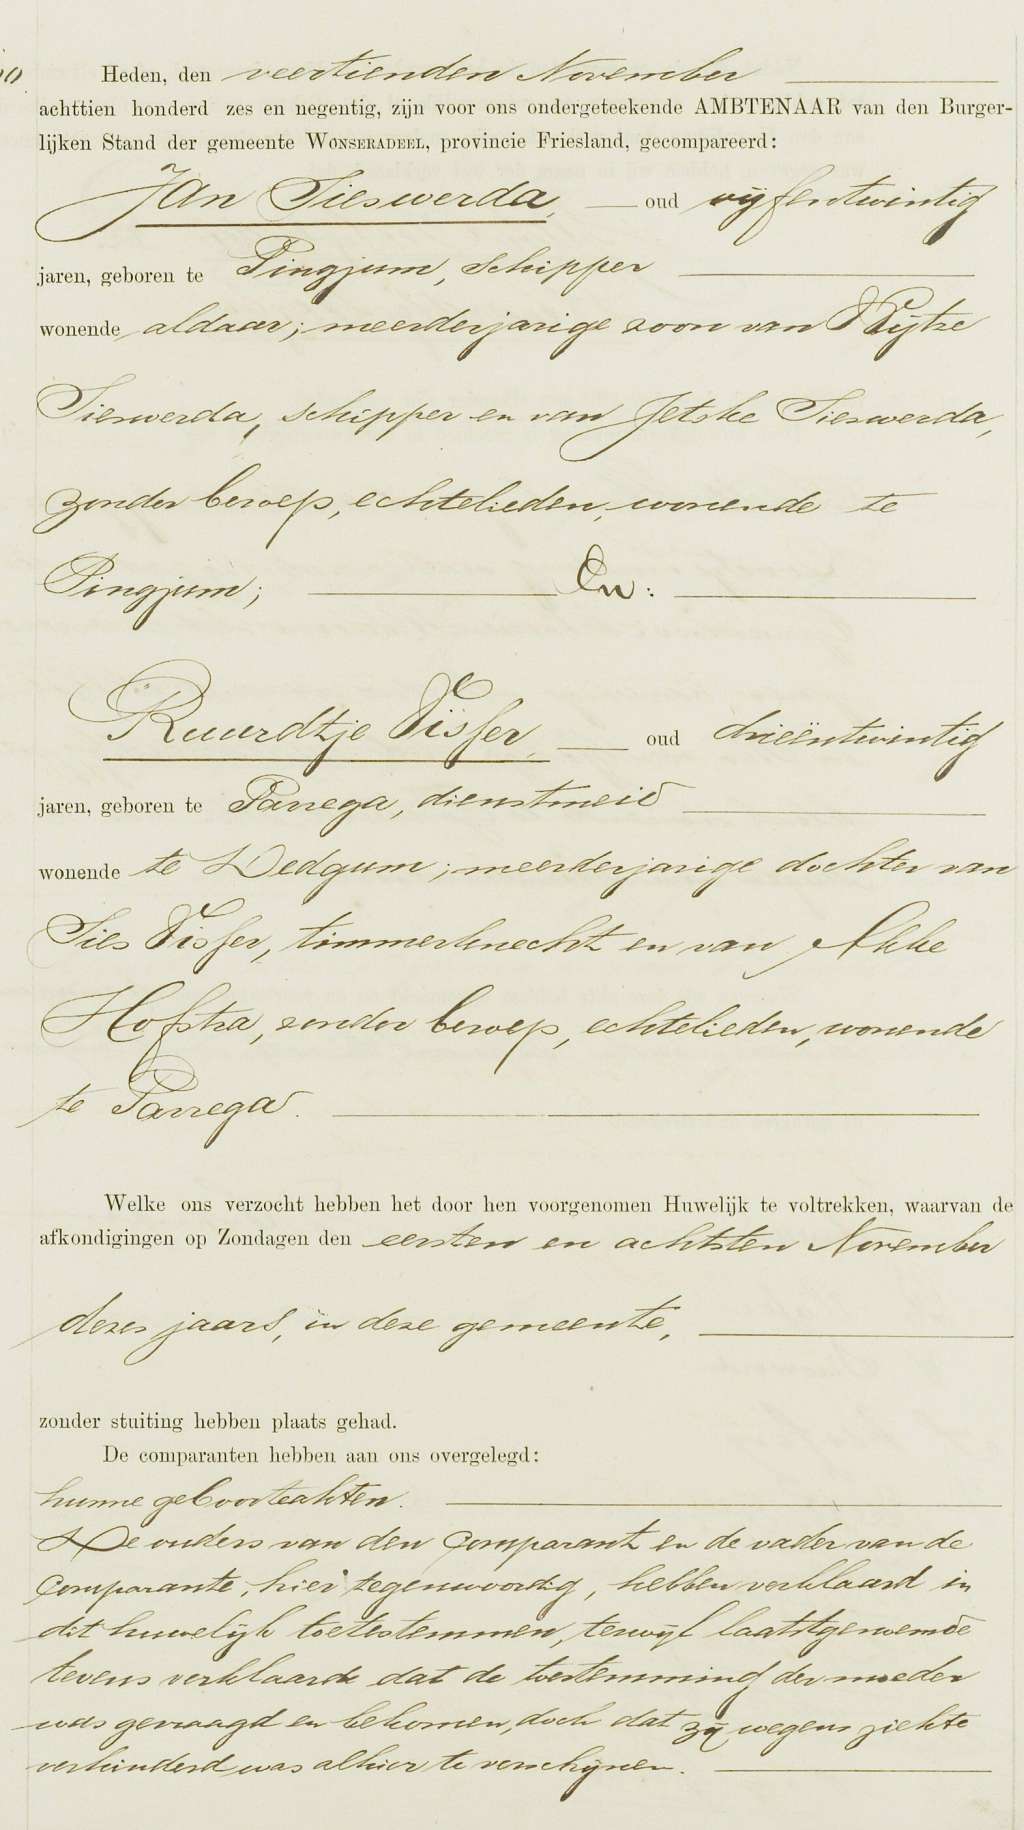 Heden, den veertienden November
achttien honderd zes en negentig, zijn voor ons ondergeteekende AMBTENAAR van den Burger-
lijken Stand der gemeente WONSERADEEL, provincie Friesland, gecompareerd:
Jan Sieswerda, oud vijfentwintig
jaren, geboren te Pingjum, schipper
wonende aldaar; meerderjarige zoon van Wijtze
Sieswerda, schipper en van Jetske Sieswerda,
zonder beroep, echtelieden, wonende te
Pingjum; En:
Ruurdtje Visser, oud drieëntwintig
jaren, geboren te Parrega, dienstmeid
wonende te Dedgum; meerderjarige dochter van
Sies Visser, timmerknecht en van Akke
Hofstra, zonder beroep, echtelieden, wonende
te Parrega.
Welke ons verzocht hebben het door hen voorgenomen Huwelijk te voltrekken, waarvan de
afkondigingen op Zondagen den eersten en achtsten November
dezes jaars, in deze gemeente,
zonder stuiting hebben plaats gehad.
De comparanten hebben aan ons overgelegd:
hunne geboorteakten.
De ouders van den Comparant en de vader van de
Comparante, hier tegenwoordig, hebben verklaard in
dit huwelijk toetestemmen, terwijl laatstgenoemde
tevens verklaarde dat de toestemming der moeder
was gevraagd en bekomen, doch dat zij wegens ziekte
verhinderd was alhier te verschijnen.